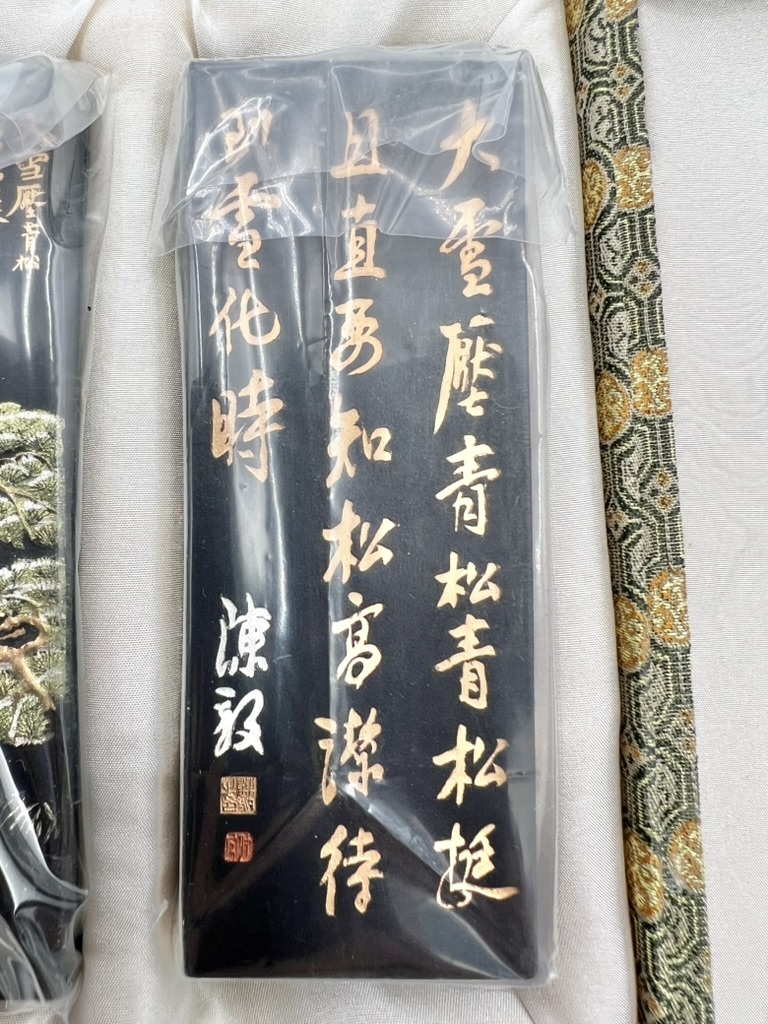 大雪壓青松青松挺
且直要知松高潔待
到雪化時
陳毅
雪壓青松